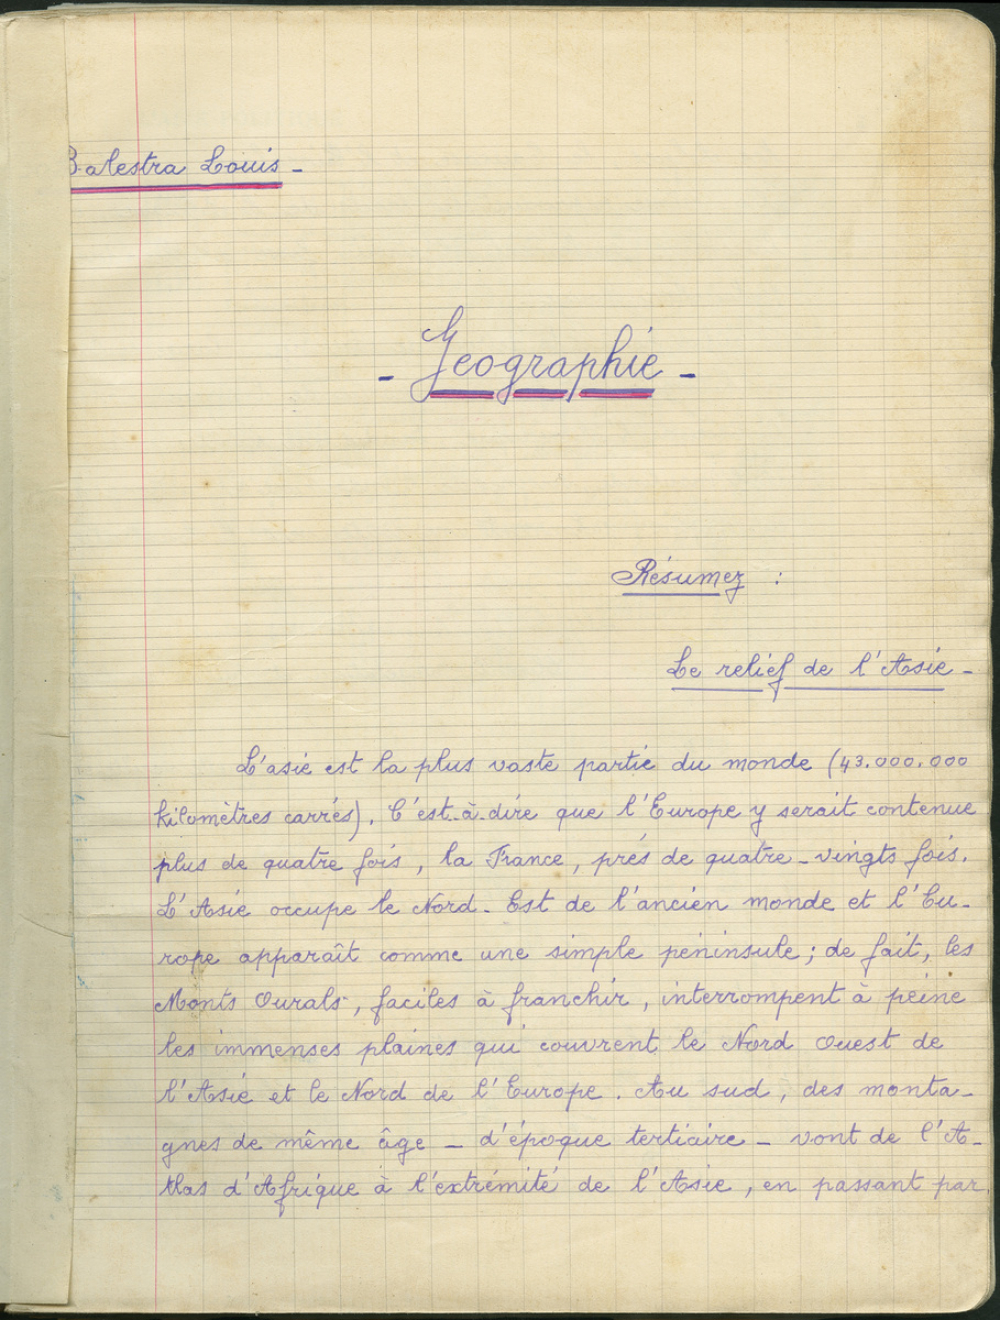 Balestra Louis -
- Géographie -
Résumez :
Le relief de l'Asie -
L'asie est la plus vaste partie du monde (43.000.000
kilomètres carrés). C'est-à-dire que l'Europe y serait contenue
plus de quatre fois, la France, près de quatre-vingts fois.
L'Asie occupe le Nord-Est de l'ancien monde et l'Eu-
rope apparaît comme une simple péninsule; de fait, les
Monts Ourals, faciles à franchir, interrompent à peine
les immenses plaines qui couvrent le Nord Ouest de
l'Asie et le Nord de l'Europe. Au sud, des monta-
gnes de même âge - d'époque tertiaire - vont de l'A-
tlas d'Afrique à l'extrémité de l'Asie, en passant par